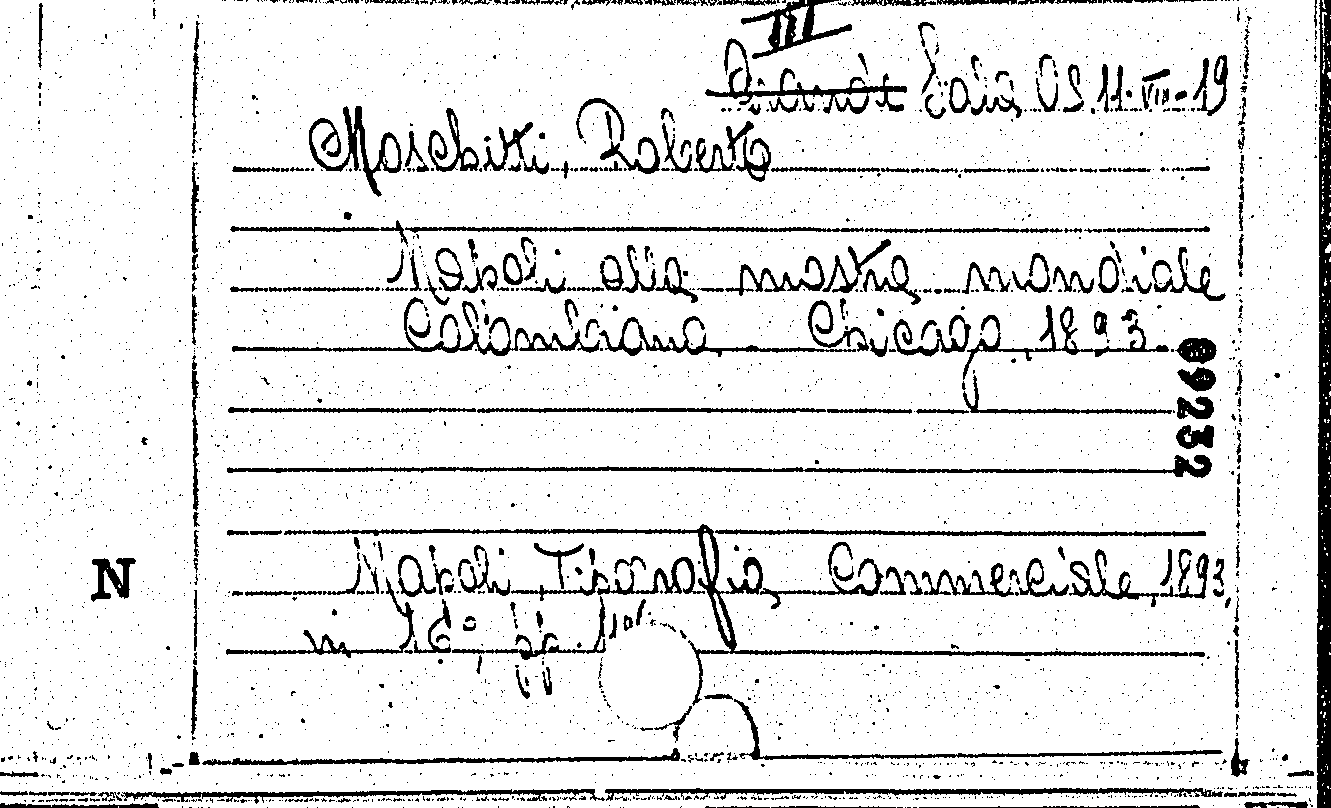 III
Sala OS. 11-VII-19
Moschitti, Roberto
Napoli alla mostra mondiale
Colombiana. Chicago, 1893.
69232
Napoli, Tipografia Commerciale, 1893,
N
in 16°, pp.